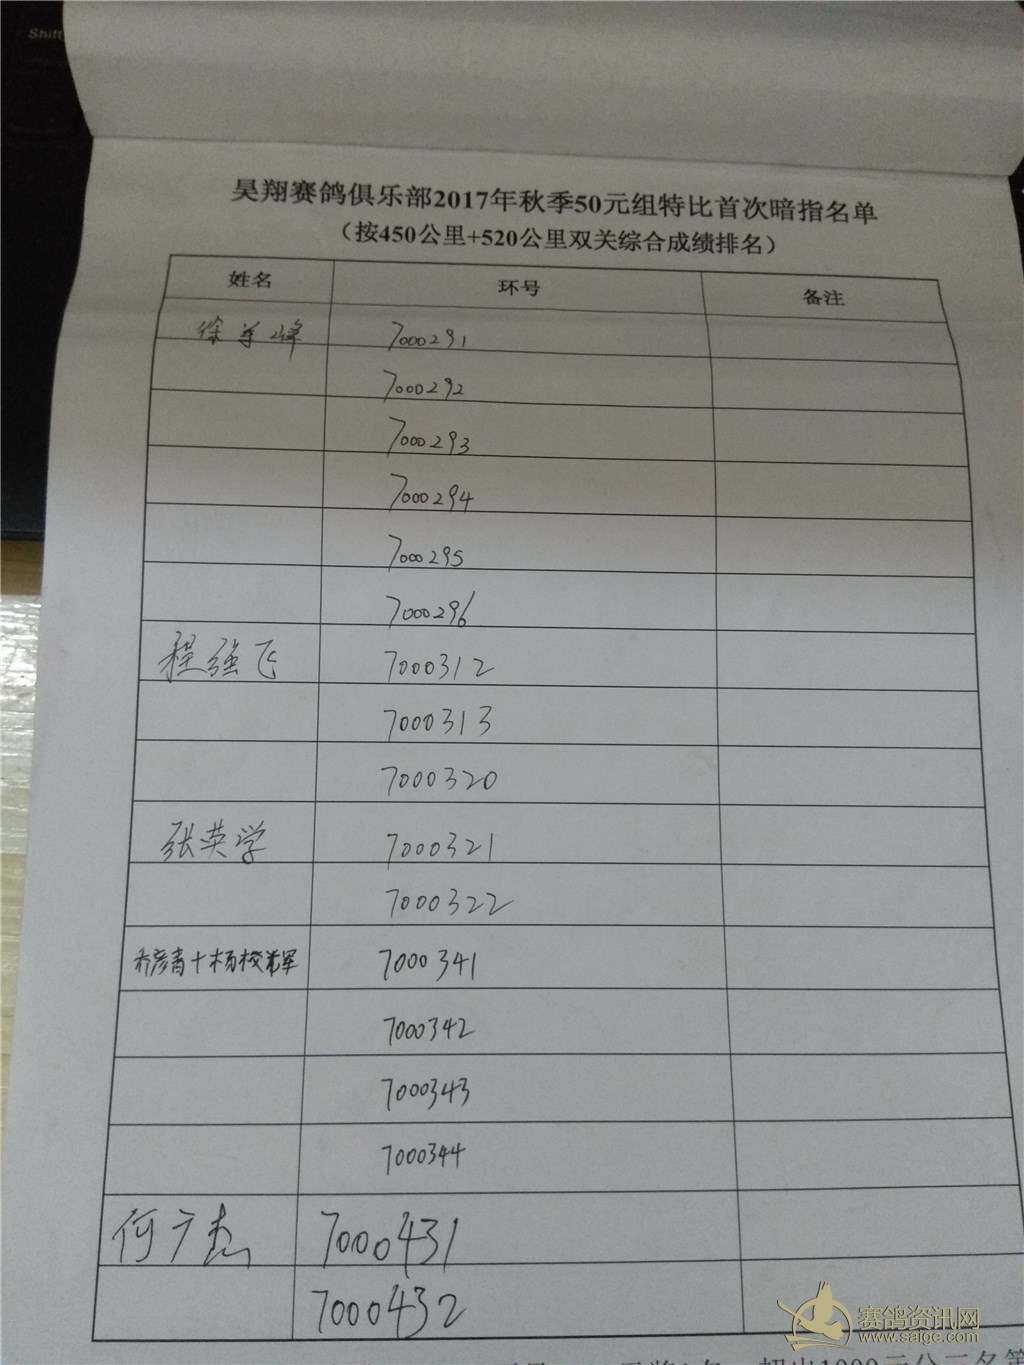 Shift
昊翔赛鸽俱乐部2017年秋季50元组特比首次暗指名单
（按450公里+520公里双关综合成绩排名）
姓名 环号 备注
徐 峰 7000291
7000292
7000293
7000294
7000295
7000296
程强飞 7000312
7000313
7000320
张英学 7000321
7000322
乔彦青+杨校军 7000341
7000342
7000343
7000344
何广杰 7000431
7000432
赛鸽资讯网
www.saige.com